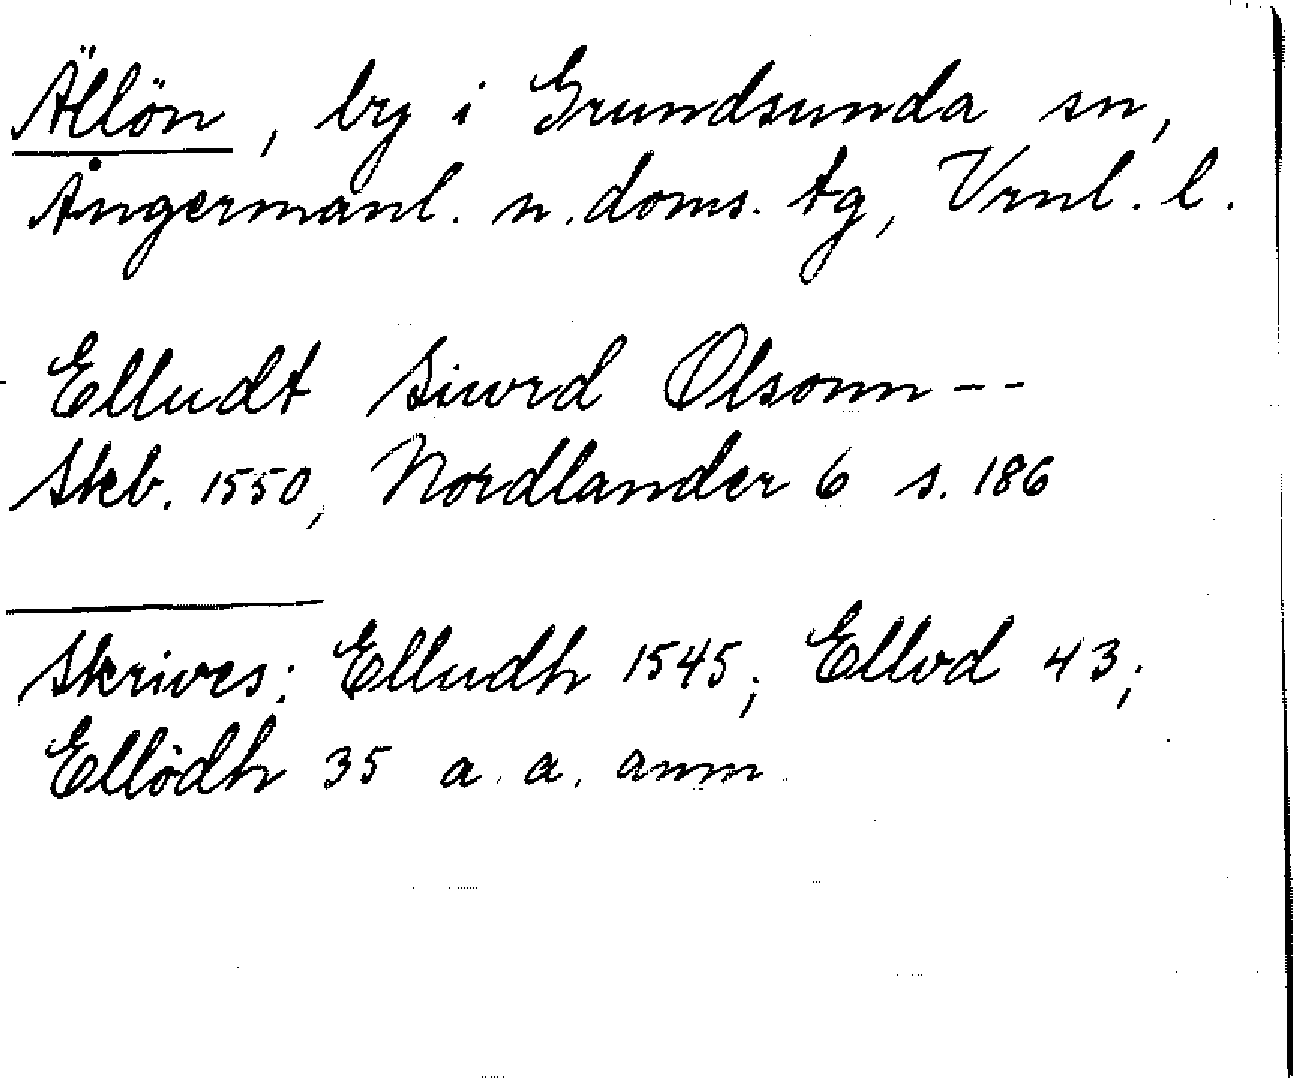 Ällön, by i Grundsunda sn,
Ångermanl. n. doms. tg, Vrnl. l.
Elludt Siwrd Olsonn --
Skb. 1550, Nordlander 6 s. 186
Skrives: Elludh 1545; Ellvd 43;
Ellödh 35 a. a. anm.